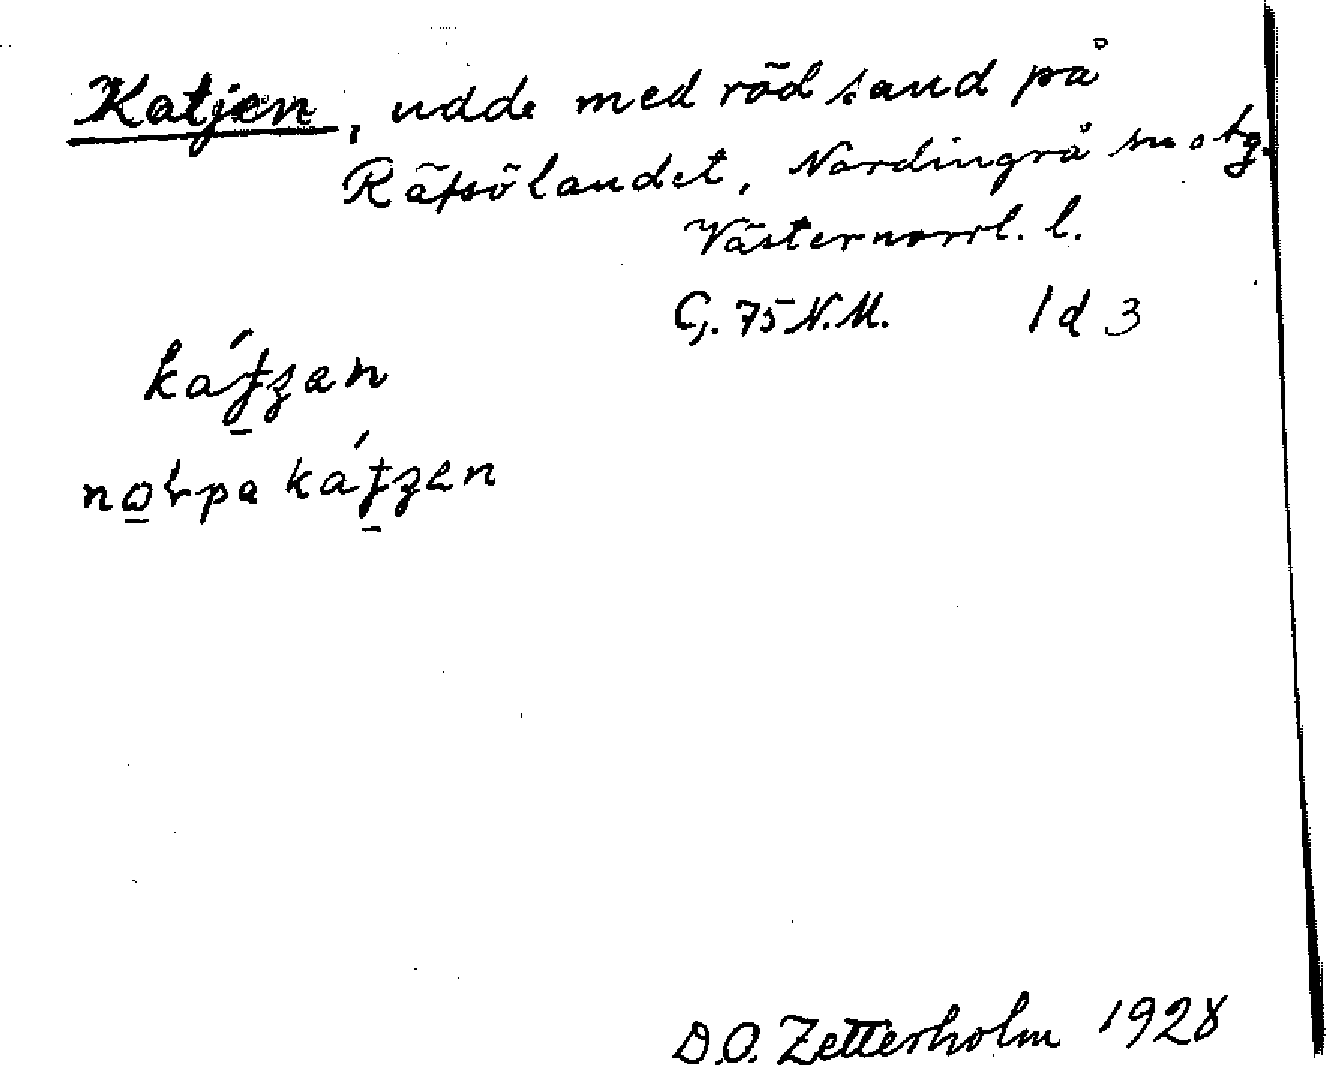 Katjen, udde med röd sand på
Räfsölandet, Nordingrå sn o tg.
Västernorrl. l.
G. 75 N.M. 1 d 3
D.O. Zetterholm 1928